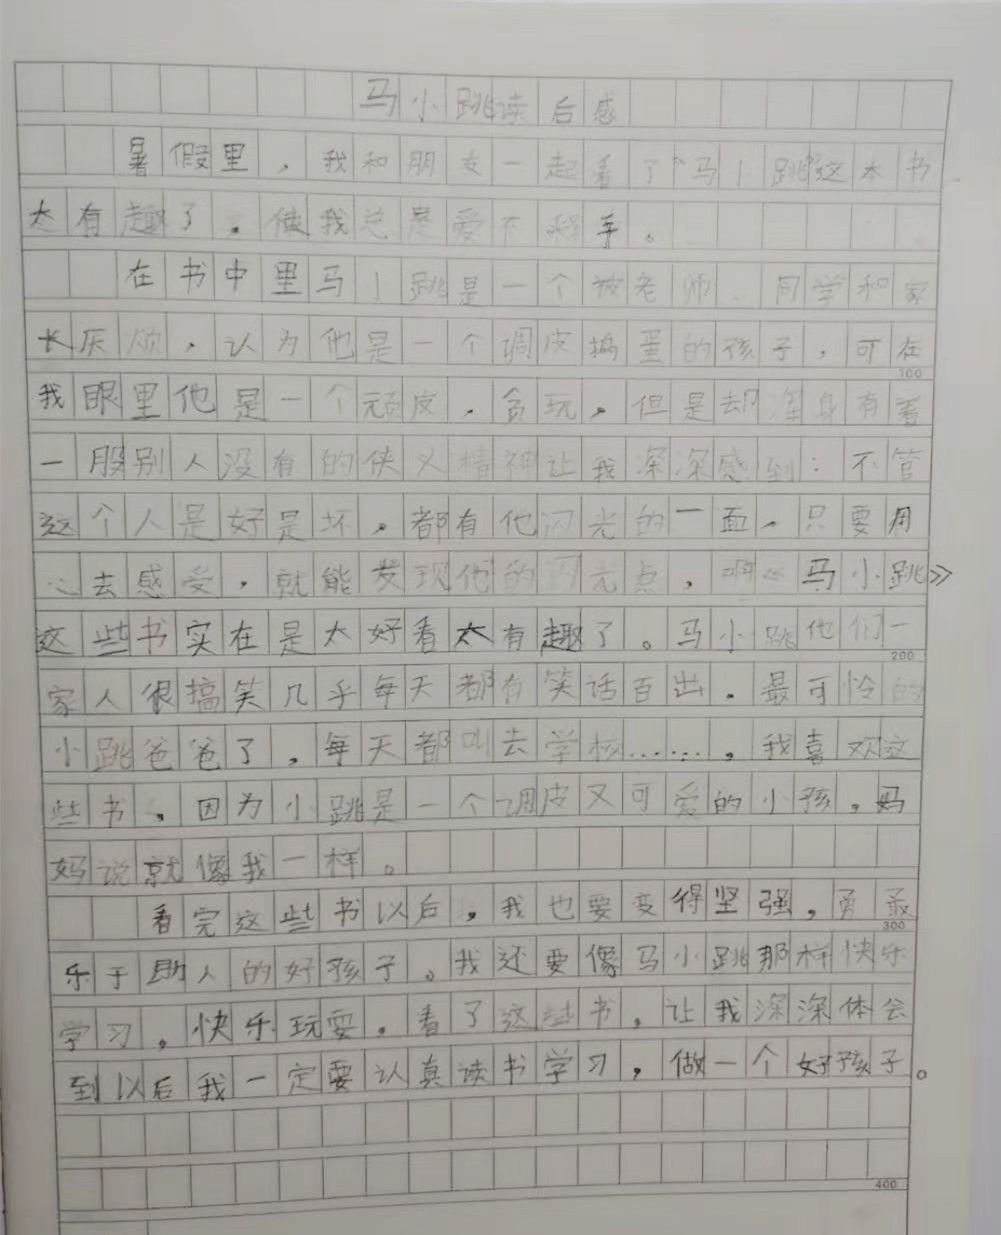 马小跳读后感
暑假里，我和朋友一起看了“马小跳”这本书
太有趣了。使我总是爱不释手。
在书中里马小跳是一个被老师、同学和家
长厌烦，认为他是一个调皮捣蛋的孩子，可在
100
我眼里他是一个顽皮，贪玩，但是却浑身有着
一股别人没有的侠义精神让我深深感到：不管
这个人是好是坏，都有他闪光的一面，只要用
心去感受，就能发现他的闪光点，啊《马小跳》
这些书实在是太好看太有趣了。马小跳他们一
200
家人很搞笑几乎每天都有笑话百出。最可怜的
小跳爸爸了，每天都叫去学校……，我喜欢这
些书，因为小跳是一个调皮又可爱的小孩，妈
妈说就像我一样。
看完这些书以后，我也要变得坚强，勇敢
300
乐于助人的好孩子。我还要像马小跳那样快乐
学习，快乐玩耍，看了这些书，让我深深体会
到以后我一定要认真读书学习，做一个好孩子。
400